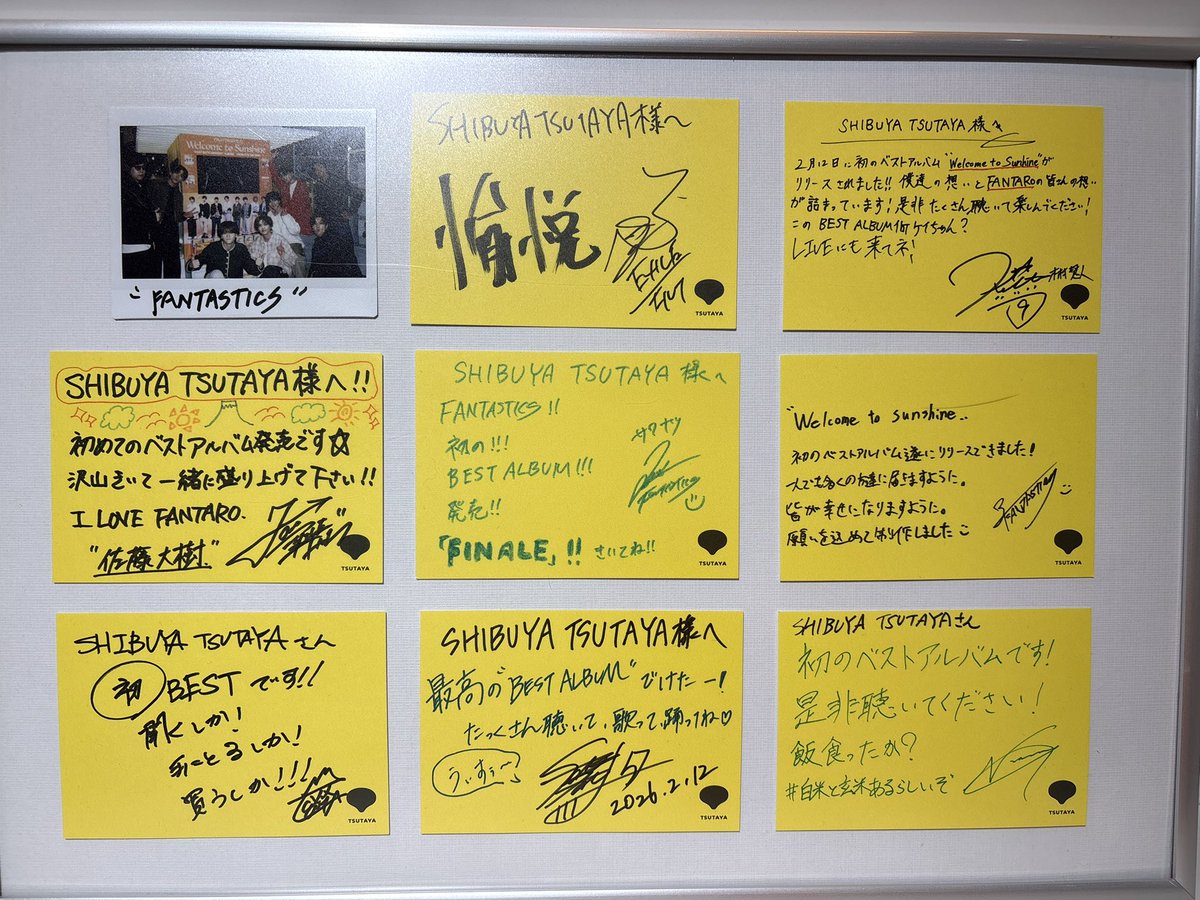 Welcome to Sunshine
"FANTASTICS"
SHIBUYA TSUTAYA様へ
愉悦
TSUTAYA
SHIBUYA TSUTAYA様へ
2月12日に初のベストアルバム"Welcome to Sunhine"が
リリースされました!! 僕達の想いとFANTAROの皆さんの想い
が詰まっています!是非たくさん聴いて楽しんでください!
このBEST ALBUM付ケイちゃん?
LIVEにも来てネ!
木村慧人
9
TSUTAYA
SHIBUYA TSUTAYA様へ!!
初めてのベストアルバム発売です☆
沢山きいて一緒に盛り上げて下さい!!
I LOVE FANTARO.
"佐藤大樹"
TSUTAYA
SHIBUYA TSUTAYA様へ
FANTASTICS!!
初の!!!
BEST ALBUM!!!
発売!!
「FINALE」!! きいてね!!
サワナツ
FANTASTICS
TSUTAYA
"Welcome to sunshine..
初のベストアルバム遂にリリースできました!
一人でも多くの方達に届きますように。
皆が幸せになりますように。
願いを込めて制作しました
FANTASTICS
TSUTAYA
SHIBUYA TSUTAYAさん
初BESTです!!
聴くしか!
手にとるしか!
買うしか!!!
TSUTAYA
SHIBUYA TSUTAYA様へ
最高の"BEST ALBUM"できたー!
たっくさん聴いて、歌って、踊ってね♡
うぃすぅ〜
2026.2.12
TSUTAYA
SHIBUYA TSUTAYAさん
初のベストアルバムです!
是非聴いてください!
飯食ったか?
#白米と玄米あるらしいぞ
TSUTAYA